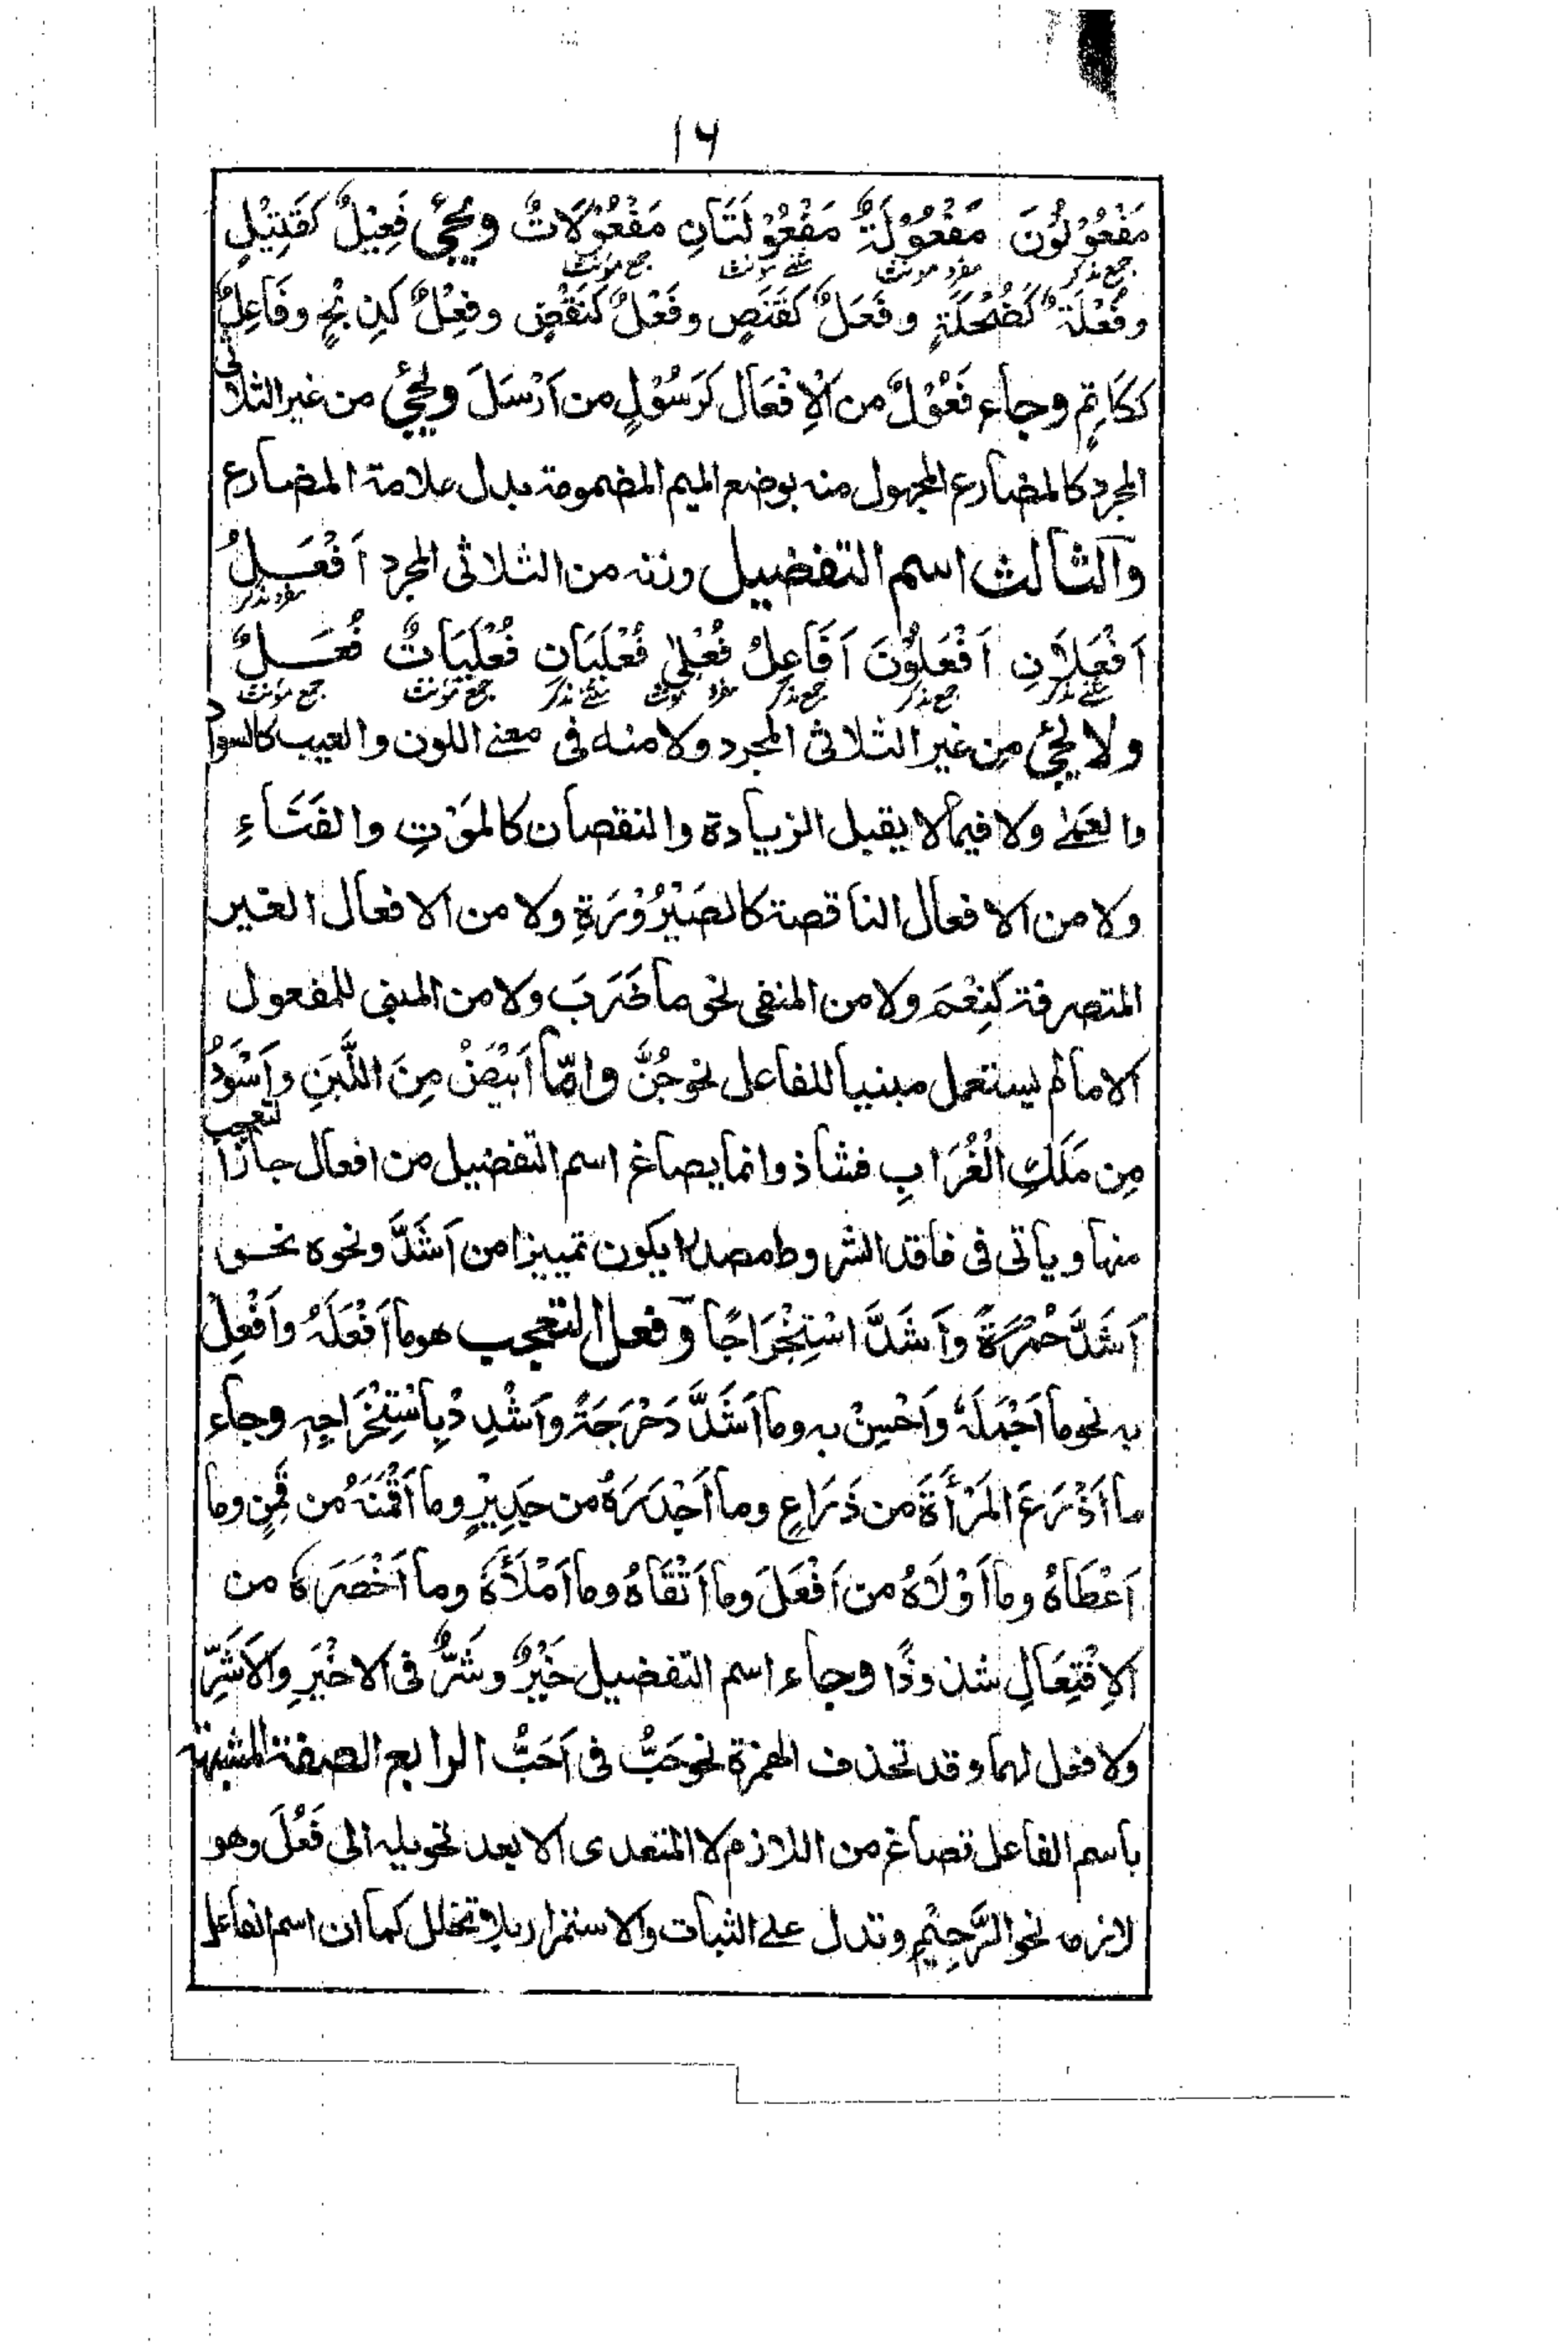 ۱۶
مَفْعُوْلُوْنَ مَفْعُوْلَةٌ مَفْعُوْلَتَانِ مَفْعُوْلَاتٌ ويجئ فَعِيْلٌ كقَتِيْلٍ
جمع مذكر مفرد مونث مثنے مونث جمع مونث
وفُعْلَةٌ كَضُحْكَةٍ وفَعَلٌ كقَنَصٍ وفَعْلٌ كنَقْضٍ وفِعْلٌ كذِبْحٍ وفَاعِلٌ
ككَاتِمٍ وجاء فَعُوْلٌ من اَلْاِفْعَال كرَسُوْلٍ من اَرْسَلَ ويجئ من غير الثلاثى
المجرد كالمضارع المجهول منه بوضع الميم المضمومة بدل علامة المضارع
والثالث اسم التفضيل وزنه من الثلاثى المجرد اَفْعَلُ
مفرد مذكر
اَفْعَلَانِ اَفْعَلُوْنَ اَفَاعِلُ فُعْلىٰ فُعْلَيَانِ فُعْلَيَاتٌ فُعَلٌ
مثنے مذكر جمع مذكر جمع مذكر مفرد مونث مثنے مذكر جمع مونث جمع مونث
ولا يجئ من غير الثلاثى المجرد ولا منه فى معنے اللون والعيب كالسواد
والعَمٰے ولا فيما لا يقبل الزيادة والنقصان كالمَوْتِ والفَنَاءِ
ولا من الافعال الناقصة كالصَيْرُوْرَةِ ولا من الافعال الغير
المتصرفة كنِعْمَ ولا من المنفى نحو ما ضَرَبَ ولا من المبنى للمفعول
الا ما لم يستعمل مبنيا للفاعل نحو جُنَّ واِمَّا اَبْيَضُ مِنَ اللَّبَنِ واَسْوَدُ
مِن حَلَكِ الْغُرَابِ فشاذ وانما يصاغ اسم التفضيل من افعال جاز التعجب
منها وياتى فى فاقد الشروط مصدرا يكون تمييزا من اَشَدَّ ونحوه نحو
اَشَدَّ حُمْرَةً وَاَشَدَّ اسْتِخْرَاجًا وفعل التعجب هو ما اَفْعَلَهُ واَفْعِلْ
به نحو ما اَجْمَلَهٗ وَاَحْسِنْ به وما اَشَدَّ دَحْرَجَةً واَشْدِدْ بِاسْتِخْرَاجِهٖ وجاء
ما اَذْرَعَ المَرْأَةَ من ذَرَاعٍ وما اَجْدَرَهُ من جَدِيْرٍ وما اَقْمَنَهُ من قَمِنٍ وما
اَعْطَاهُ وما اَوْلَاهُ من اَفْعَلَ وما اَتْقَاهُ وما اَمْلَأَهُ وما اَخْصَرَهُ من
الاِفْتِعَالِ شذوذًا وجاء اسم التفضيل خَيْرٌ وشَرٌّ فى الاخْيَرِ والاَشَرِّ
ولا فعل لهما وقد تحذف الهمزة نحو حَبُّ فى اَحَبُّ الرابع الصفة المشبهة
باسم الفاعل تصاغ من اللازم لا المتعدى الا بعد تحويله الى فَعُلَ وهو
لازم نحو الرَّحِيْمِ وتدل على الثبات والاستمرار بلا تخلل كما ان اسم الفاعل